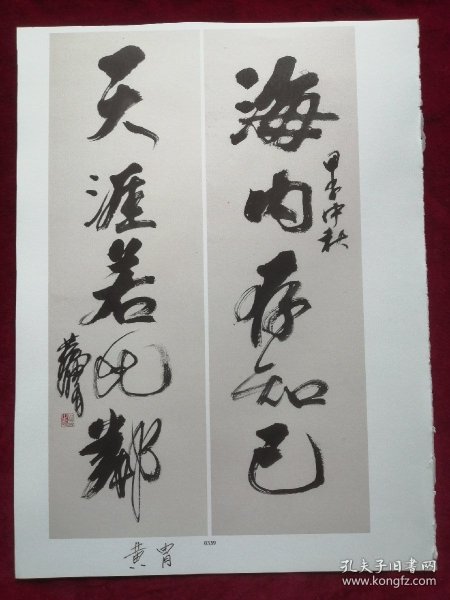 海内存知己
天涯若比鄰
黄胄
0339
黄胄
孔夫子旧书网
www.kongfz.com